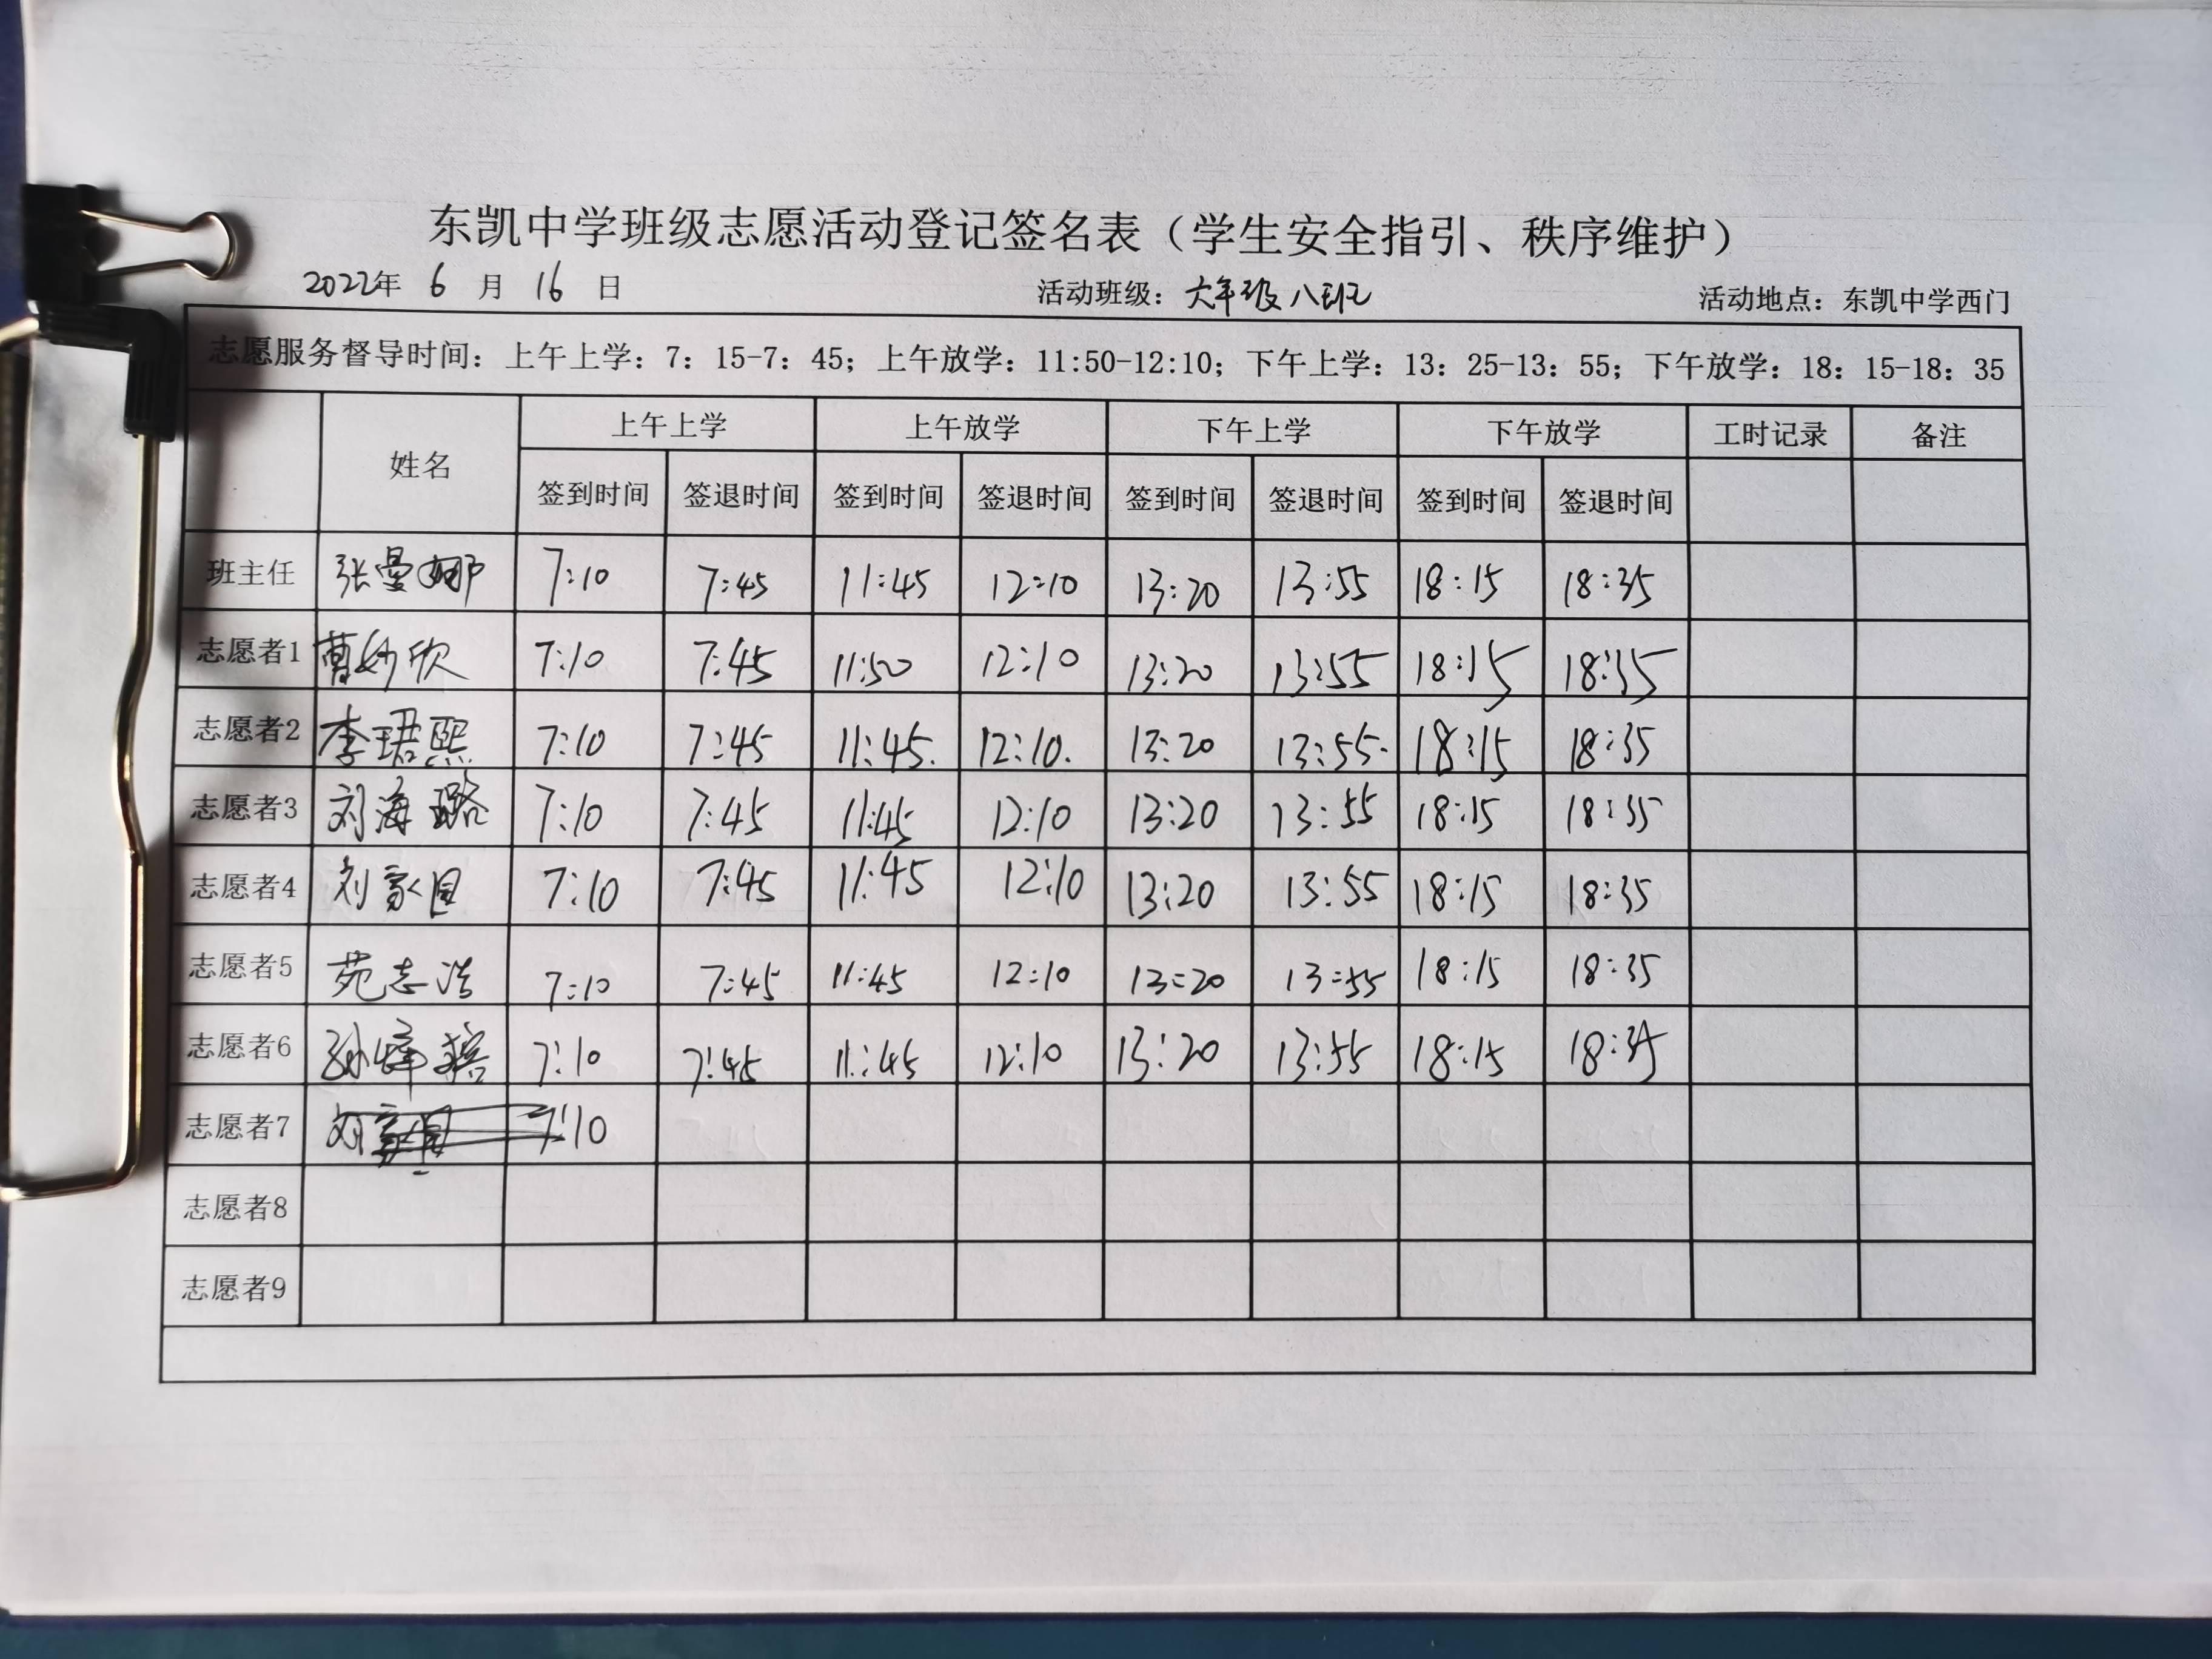 东凯中学班级志愿活动登记签名表（学生安全指引、秩序维护）
2022年 6 月 16 日 活动班级：六年级八班 活动地点：东凯中学西门
志愿服务督导时间：上午上学：7：15-7：45；上午放学：11:50-12:10；下午上学：13：25-13：55；下午放学：18：15-18：35
姓名 上午上学 上午放学 下午上学 下午放学 工时记录 备注
签到时间 签退时间 签到时间 签退时间 签到时间 签退时间 签到时间 签退时间
班主任 张曼娜 7:10 7:45 11:45 12:10 13:20 13:55 18:15 18:35
志愿者1 曹妙欣 7:10 7:45 11:50 12:10 13:20 13:55 18:15 18:35
志愿者2 李珺熙 7:10 7:45 11:45. 12:10. 13:20 13:55. 18:15 18:35
志愿者3 刘海璐 7:10 7:45 11:45 12:10 13:20 13:55 18:15 18:35
志愿者4 刘家 7:10 7:45 11:45 12:10 13:20 13:55 18:15 18:35
志愿者5 苑志浩 7:10 7:45 11:45 12:10 13:20 13:55 18:15 18:35
志愿者6 孙 7:10 7:45 11:45 12:10 13:20 13:55 18:15 18:35
志愿者7 7:10
志愿者8
志愿者9